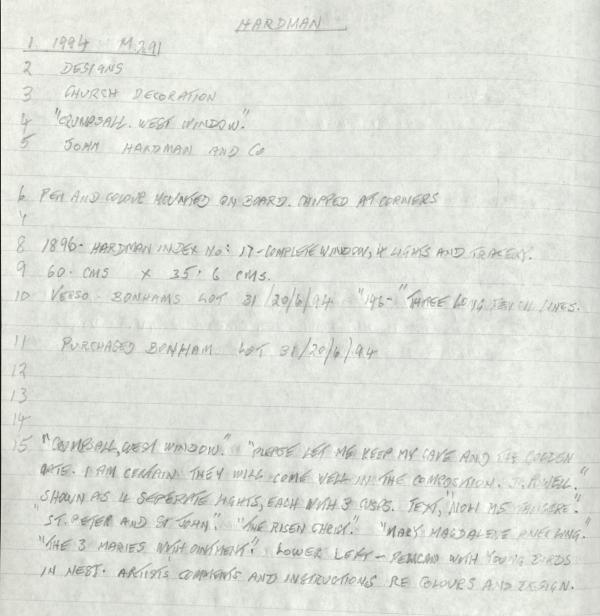 HARDMAN
1 1994 M.291
2 DESIGNS
3 CHURCH DECORATION
4 "CRUMPSALL. WEST WINDOW."
5 JOHN HARDMAN AND Co
6 PEN AND COLOUR MOUNTED ON BOARD. CHIPPED AT CORNERS
8 1896. HARDMAN INDEX No: 17 - COMPLETE WINDOW, 4 LIGHTS AND TRACERY.
9 60. CMS X 35.6 CMS.
10 VERSO. BONHAMS LOT 31/20/6/94 "146-" THREE LONG PENCIL LINES.
11 PURCHASED BONHAM LOT 31/20/6/94
12
13
14
15 "CRUMPSALL, WEST WINDOW." "PLEASE LET ME KEEP MY CAVE AND THE GOLDEN
GATE. I AM CERTAIN THEY WILL COME WELL IN THE COMPOSITION.
SHOWN AS 4 SEPERATE LIGHTS, EACH WITH 3 CUSPS. TEXT, "NOLI ME TANGERE".
"ST. PETER AND ST JOHN". "THE RISEN CHRIST." "MARY MAGDALENE KNEELING."
"THE 3 MARIES WITH OINTMENT". LOWER LEFT - PELICAN WITH YOUNG BIRDS
IN NEST. ARTISTS COMMENTS AND INSTRUCTIONS RE COLOURS AND DESIGN.